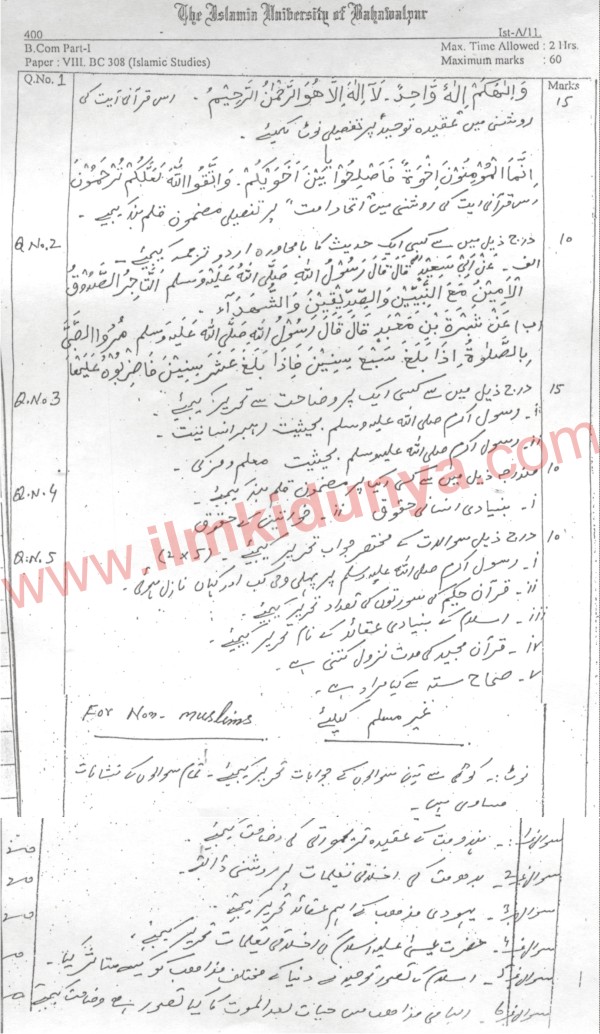 The Islamia University of Bahawalpur
400 Ist-A/11
B.Com Part-I Max. Time Allowed : 2 Hrs.
Paper : VIII. BC 308 (Islamic Studies) Maximum marks : 60
Q.No. 1 Marks
وَاِلٰهُكُمْ اِلٰهٌ وَّاحِدٌ۔ لَآ اِلٰهَ اِلَّا هُوَ الرَّحْمٰنُ الرَّحِيْمُ۔ اس قرآنی آیت کی 15
روشنی میں عقیدہ توحید پر تفصیلی نوٹ لکھیئے۔
یا
اِنَّمَا الْمُؤْمِنُوْنَ اِخْوَةٌ فَاَصْلِحُوْا بَيْنَ اَخَوَيْكُمْ۔ وَاتَّقُوا اللّٰهَ لَعَلَّكُمْ تُرْحَمُوْنَ
اس قرآنی آیت کی روشنی میں "اتحاد امت" پر تفصیلی مضمون قلم بند کیجیے۔
Q No.2 درج ذیل میں سے کسی ایک حدیث کا بامحاورہ اردو ترجمہ کیجیئے۔ 10
الف۔ عَنْ اَبِیْ سَعِيْدٍ قَالَ قَالَ رَسُوْلُ اللّٰهِ صَلَّی اللّٰهُ عَلَيْهِ وَسَلَّم اَلتَّاجِرُ الصَّدُوْقُ
الْاَمِيْنُ مَعَ النَّبِيّٖنَ وَالصِّدِّيْقِيْنَ وَالشُّهَدَآءِ۔
(ب) عَنْ سَبْرَةَ بْنِ مَعْبَدٍ قَالَ قَالَ رَسُوْلُ اللّٰهِ صَلَّی اللّٰهُ عَلَيْهِ وَسَلَّم مُرُوا الصَّبِیَّ
بِالصَّلٰوةِ اِذَا بَلَغَ سَبْعَ سِنِيْنَ فَاِذَا بَلَغَ عَشَرَ سِنِيْنَ فَاضْرِبُوْهُ عَلَيْهَا
Q.No 3 درج ذیل میں سے کسی ایک پر وضاحت سے تحریر کیجیئے۔ 15
i۔ رسول اکرم صلی اللہ علیہ وسلم بحیثیت رہبر انسانیت۔
ii۔ رسول اکرم صلی اللہ علیہ وسلم بحیثیت معلم و مزکی۔
Q.N.4 مندرجہ ذیل میں سے کسی ایک پر مضمون قلم بند کیجیئے۔ 10
i۔ بنیادی انسانی حقوق ii۔ خواتین کے حقوق
Q.N.5 درج ذیل سوالات کے مختصر جواب تحریر کیجیئے۔ (2x5) 10
i۔ رسول اکرم صلی اللہ علیہ وسلم پر پہلی وحی کب اور کہاں نازل ہوئی۔
ii۔ قرآن حکیم کی سورتوں کی تعداد تحریر کیجیئے۔
iii۔ اسلام کے بنیادی عقائد کے نام تحریر کیجیئے۔
iv۔ قرآن مجید کی مدت نزول کتنی ہے۔
v۔ صحاح ستہ سے کیا مراد ہے۔
www.ilmkidunya.com
For Non-muslims غیر مسلم کیلئے
نوٹ:۔ کوئی سے تین سوالوں کے جوابات تحریر کیجیئے۔ تمام سوالوں کے نشانات
مساوی ہیں۔
سوال نمبر 1۔ ہندومت کے عقیدہ تریمورتی کی وضاحت کیجیئے۔ 20
سوال نمبر 2۔ بدھ مت کی اخلاقی تعلیمات پر روشنی ڈالئے۔ 20
سوال نمبر 3۔ یہودی مذہب کے اہم عقائد تحریر کیجیئے۔ 20
سوال نمبر 4۔ حضرت عیسیٰ علیہ السلام کی اخلاقی تعلیمات تحریر کیجیئے۔
سوال نمبر 5۔ اسلام کے تصور توحید نے دنیا کے مختلف مذاہب کو کیسے متاثر کیا۔
سوال نمبر 6۔ الہامی مذاہب میں حیات بعد الموت کا کیا تصور ہے وضاحت کیجیئے